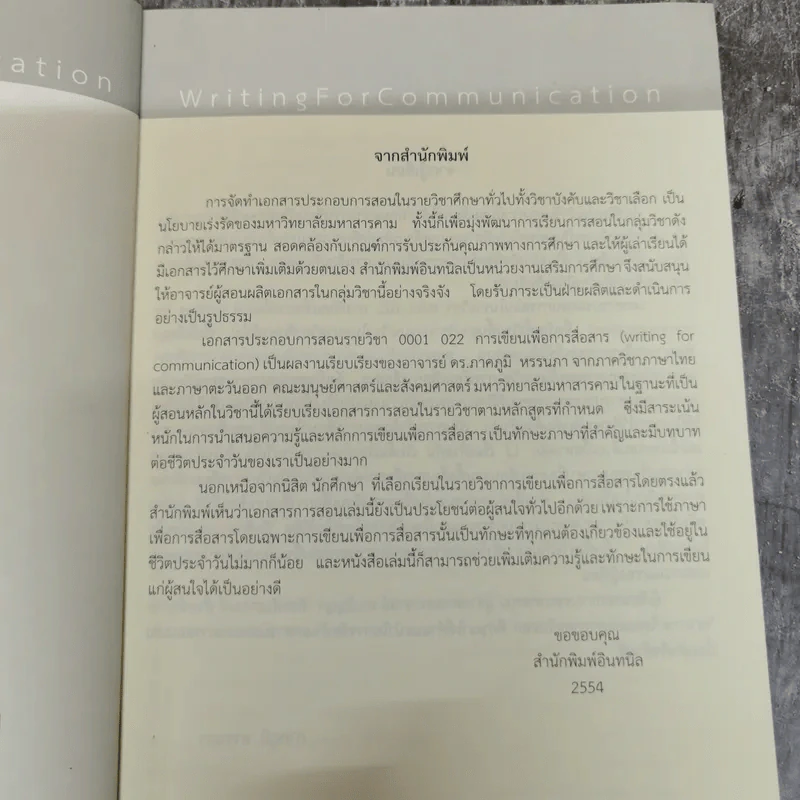 ation
WritingForCommunication
จากสำนักพิมพ์
การจัดทำเอกสารประกอบการสอนในรายวิชาศึกษาทั่วไปทั้งวิชาบังคับและวิชาเลือก เป็น
นโยบายเร่งรัดของมหาวิทยาลัยมหาสารคาม ทั้งนี้ก็เพื่อมุ่งพัฒนาการเรียนการสอนในกลุ่มวิชาดัง
กล่าวให้ได้มาตรฐาน สอดคล้องกับเกณฑ์การรับประกันคุณภาพทางการศึกษา และให้ผู้เล่าเรียนได้
มีเอกสารไว้ศึกษาเพิ่มเติมด้วยตนเอง สำนักพิมพ์อินทนิลเป็นหน่วยงานเสริมการศึกษา จึงสนับสนุน
ให้อาจารย์ผู้สอนผลิตเอกสารในกลุ่มวิชานี้อย่างจริงจัง โดยรับภาระเป็นฝ่ายผลิตและดำเนินการ
อย่างเป็นรูปธรรม
เอกสารประกอบการสอนรายวิชา 0001 022 การเขียนเพื่อการสื่อสาร (writing for
communication) เป็นผลงานเรียบเรียงของอาจารย์ ดร.ภาคภูมิ หรรนภา จากภาควิชาภาษาไทย
และภาษาตะวันออก คณะมนุษย์ศาสตร์และสังคมศาสตร์ มหาวิทยาลัยมหาสารคามในฐานะที่เป็น
ผู้สอนหลักในวิชานี้ได้เรียบเรียงเอกสารการสอนในรายวิชาตามหลักสูตรที่กำหนด ซึ่งมีสาระเน้น
หนักในการนำเสนอความรู้และหลักการเขียนเพื่อการสื่อสาร เป็นทักษะภาษาที่สำคัญและมีบทบาท
ต่อชีวิตประจำวันของเราเป็นอย่างมาก
นอกเหนือจากนิสิต นักศึกษา ที่เลือกเรียนในรายวิชาการเขียนเพื่อการสื่อสารโดยตรงแล้ว
สำนักพิมพ์เห็นว่าเอกสารการสอนเล่มนี้ยังเป็นประโยชน์ต่อผู้สนใจทั่วไปอีกด้วย เพราะการใช้ภาษา
เพื่อการสื่อสารโดยเฉพาะการเขียนเพื่อการสื่อสารนั้นเป็นทักษะที่ทุกคนต้องเกี่ยวข้องและใช้อยู่ใน
ชีวิตประจำวันไม่มากก็น้อย และหนังสือเล่มนี้ก็สามารถช่วยเพิ่มเติมความรู้และทักษะในการเขียน
แก่ผู้สนใจได้เป็นอย่างดี
ขอขอบคุณ
สำนักพิมพ์อินทนิล
2554